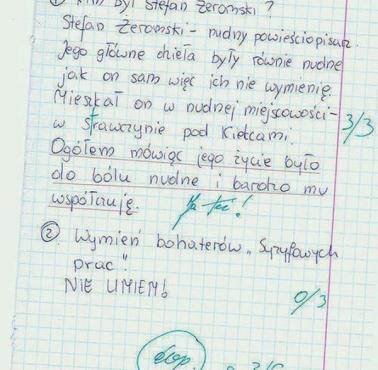 ① Kim był Stefan Żeromski?
Stefan Żeromski - nudny powieściopisarz.
Jego główne dzieła były równie nudne
jak on sam więc ich nie wymienię.
Mieszkał on w nudnej miejscowości -
w Strawczynie pod Kielcami.
3/3
Ogółem mówiąc jego życie było
do bólu nudne i bardzo mu
współczuję.
Ja też!
② Wymień bohaterów „Syzyfowych
prac".
NIE UMIEM!
0/3
dop.